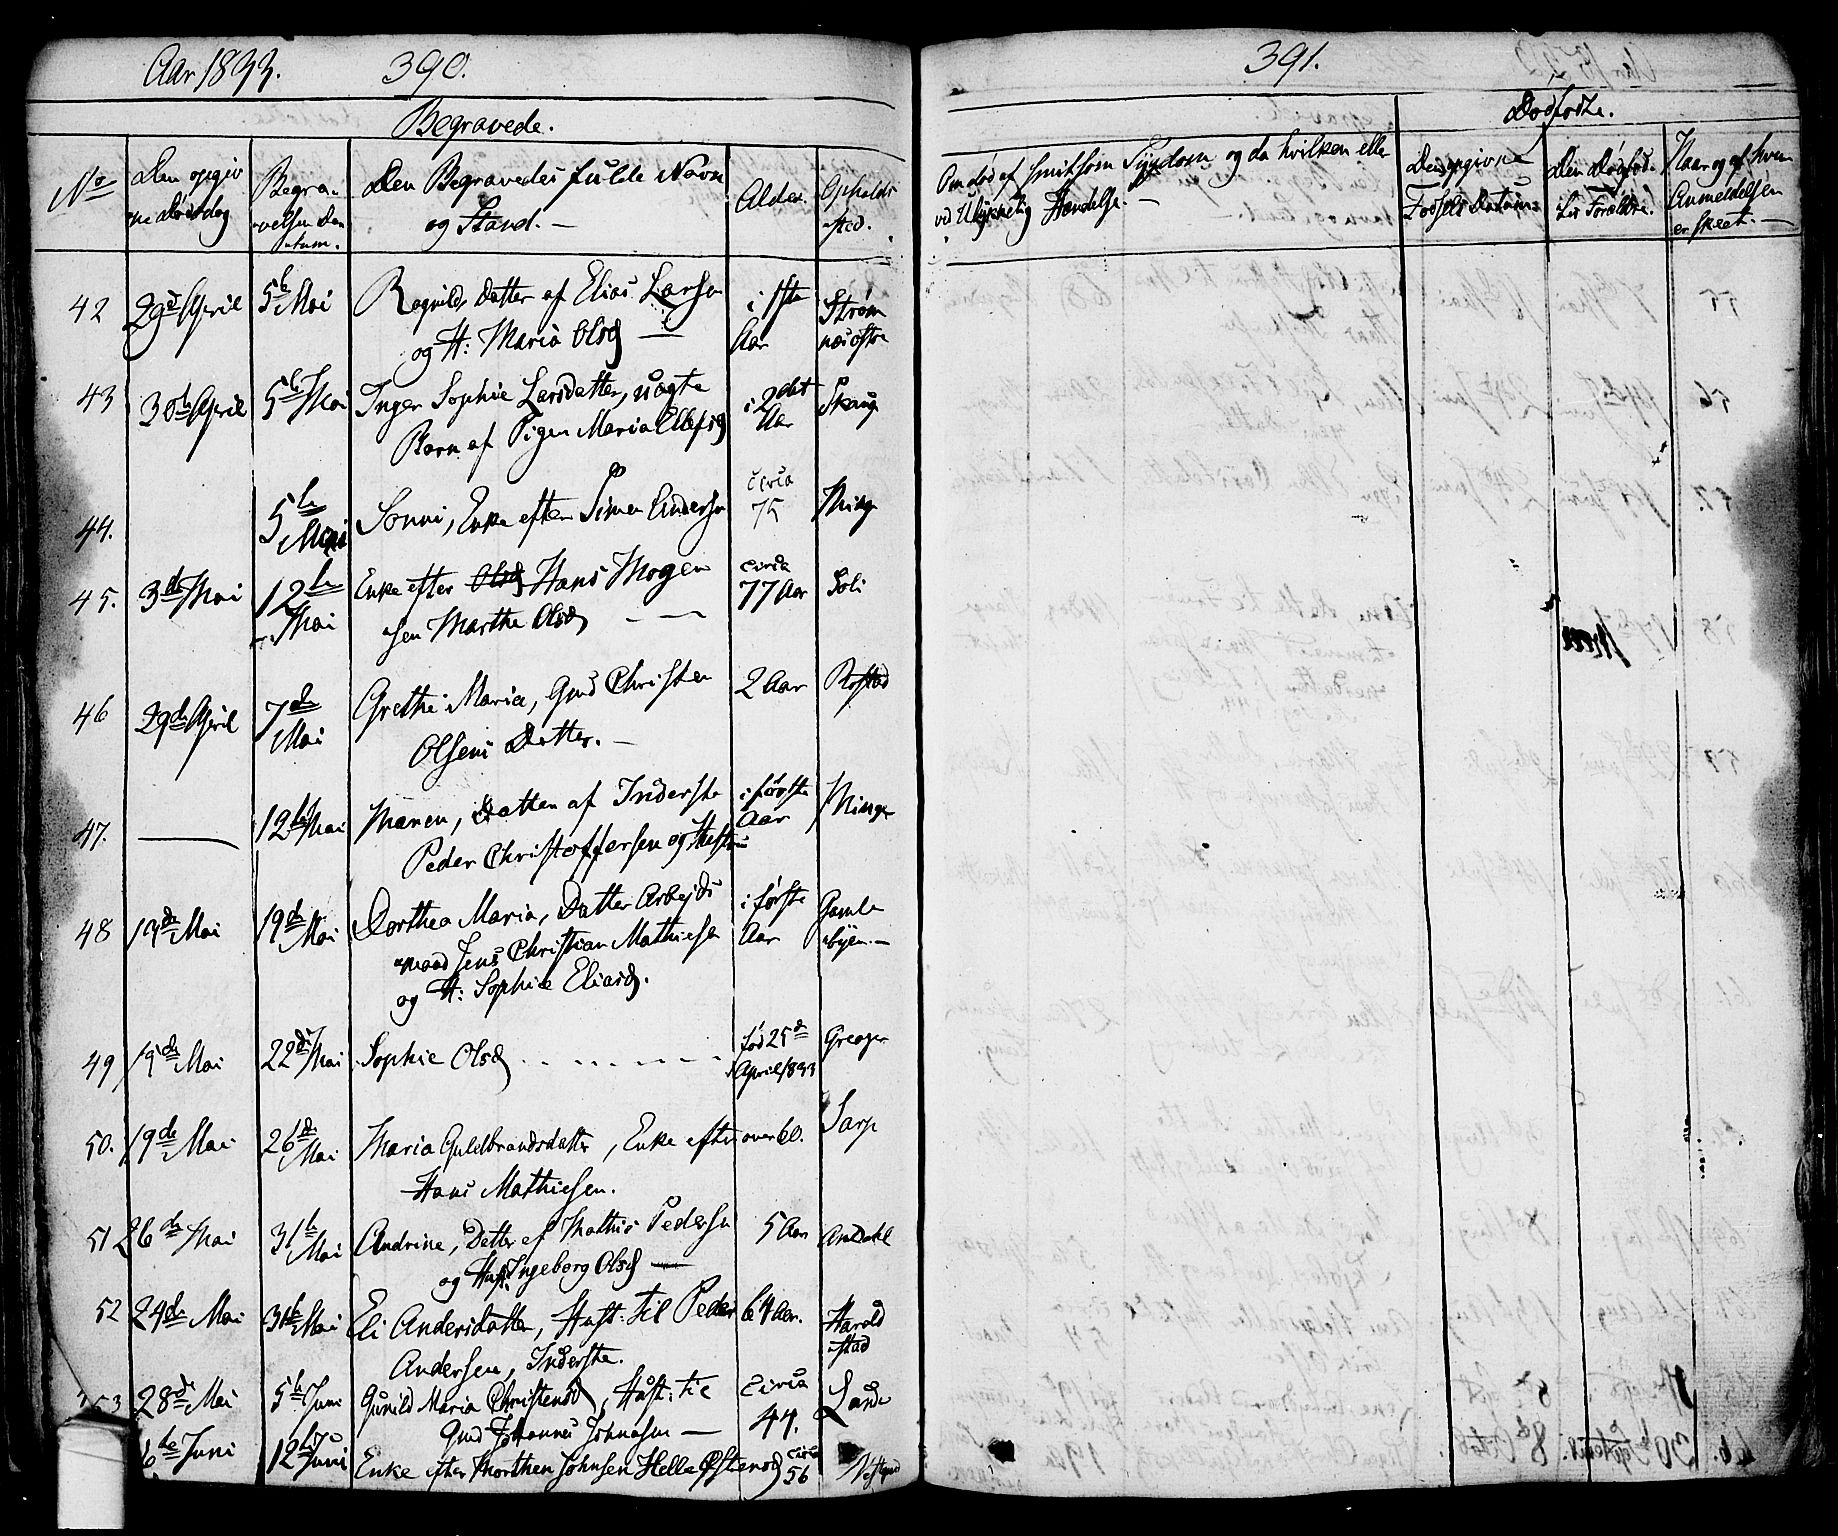 Aar 1833. 390.
Begravede.
No
Den opgiv
ne Dødsdag
Begra-
velsen Da-
tum.
Den Begravedes fulde Navn
og Stand. —
Alder.
Opholds
sted.
42 29de April 5te Mai Ragnild, Datter af Elias Larsen i 1ste Strøm
og H: Maria Olsd — Aar næs østre
43 30te April 5te Mai Inger Sophie Larsdatter, uægte i 2det Skaug
Barn af Pigen Maria Ellefsd Aar
44. 5te Mai Sonni, Enke efter Simen Andersen circa 75 Minge
45. 3de Mai 12te Enke efter Olsd Hans Mogen circa Soli
Mai sen Marthe Olsd — — 77 Aar
46 29de April 7de Grethe Maria, Gmd Christen 2 Aar Rostad
Mai Olsens Datter. —
47. — 12te Mai Maren, Datter af Inderste i første Minge
Peder Christoffersen og Hustru Aar
48 13de Mai 19de Mai Dorthea Maria, Datter Arbejds i første Gamle
mand Jens Christian Mathiesen Aar byen. —
og H: Sophie Eliasd.
49 15de Mai 22de Mai Sophie Olsd . . - - - - - - fød 25de Greager
April 1833
50. 19de Mai 26de Mai Maria Guldbrandsdatter, Enke efter over 60. Sarp
Hans Mathiesen.
51 26de Mai 31te Mai Andrine, Datter af Mathis Pedersen 5 Aar Ondahl
og Hust: Ingeborg Olsd —
52 24de Mai 31te Mai Eli Andersdatter, Hust: til Peder 64 Aar. Harald
Andersen, Inderste. stad
53 28de Mai 5te Juni Gunild Maria Christensd, Hust: til circa Lande
Gmd Johannes Johnasen — 44.
6te Juni 12te Juni Enke efter Morthen Johnsen Helle Østensd circa
56
391.
Dødfødte.
Om død af smitsom Sygdom og da hvilken eller
ved Ulykkelig Hændelse. —
Den opgivne
Fødsels Datum
Den Dødfød-
tes Forældre.
Naar og af hvem
Anmeldelsen
er skeet. —